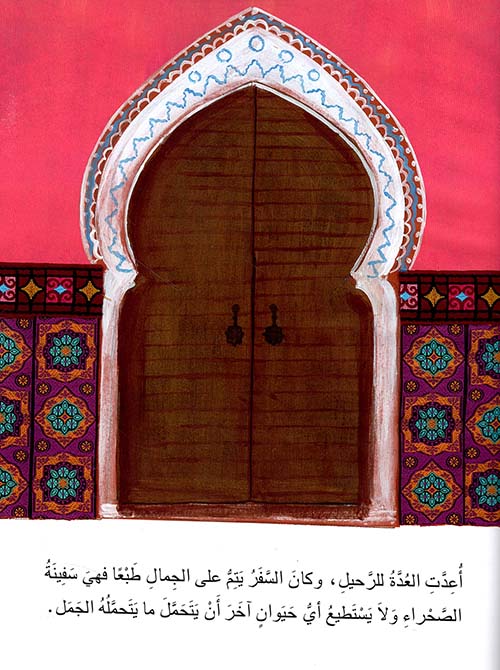 أُعِدَّتِ العُدَّةُ للرَّحيلِ، وكانَ السَّفَرُ يَتِمُّ على الجِمالِ طَبْعًا فهيَ سَفِينَةُ
الصَّحْراءِ وَلاَ يَسْتَطيعُ أيُّ حَيَوانٍ آخَرَ أَنْ يَتَحَمَّلَ ما يَتَحمَّلُهُ الجَمَل.